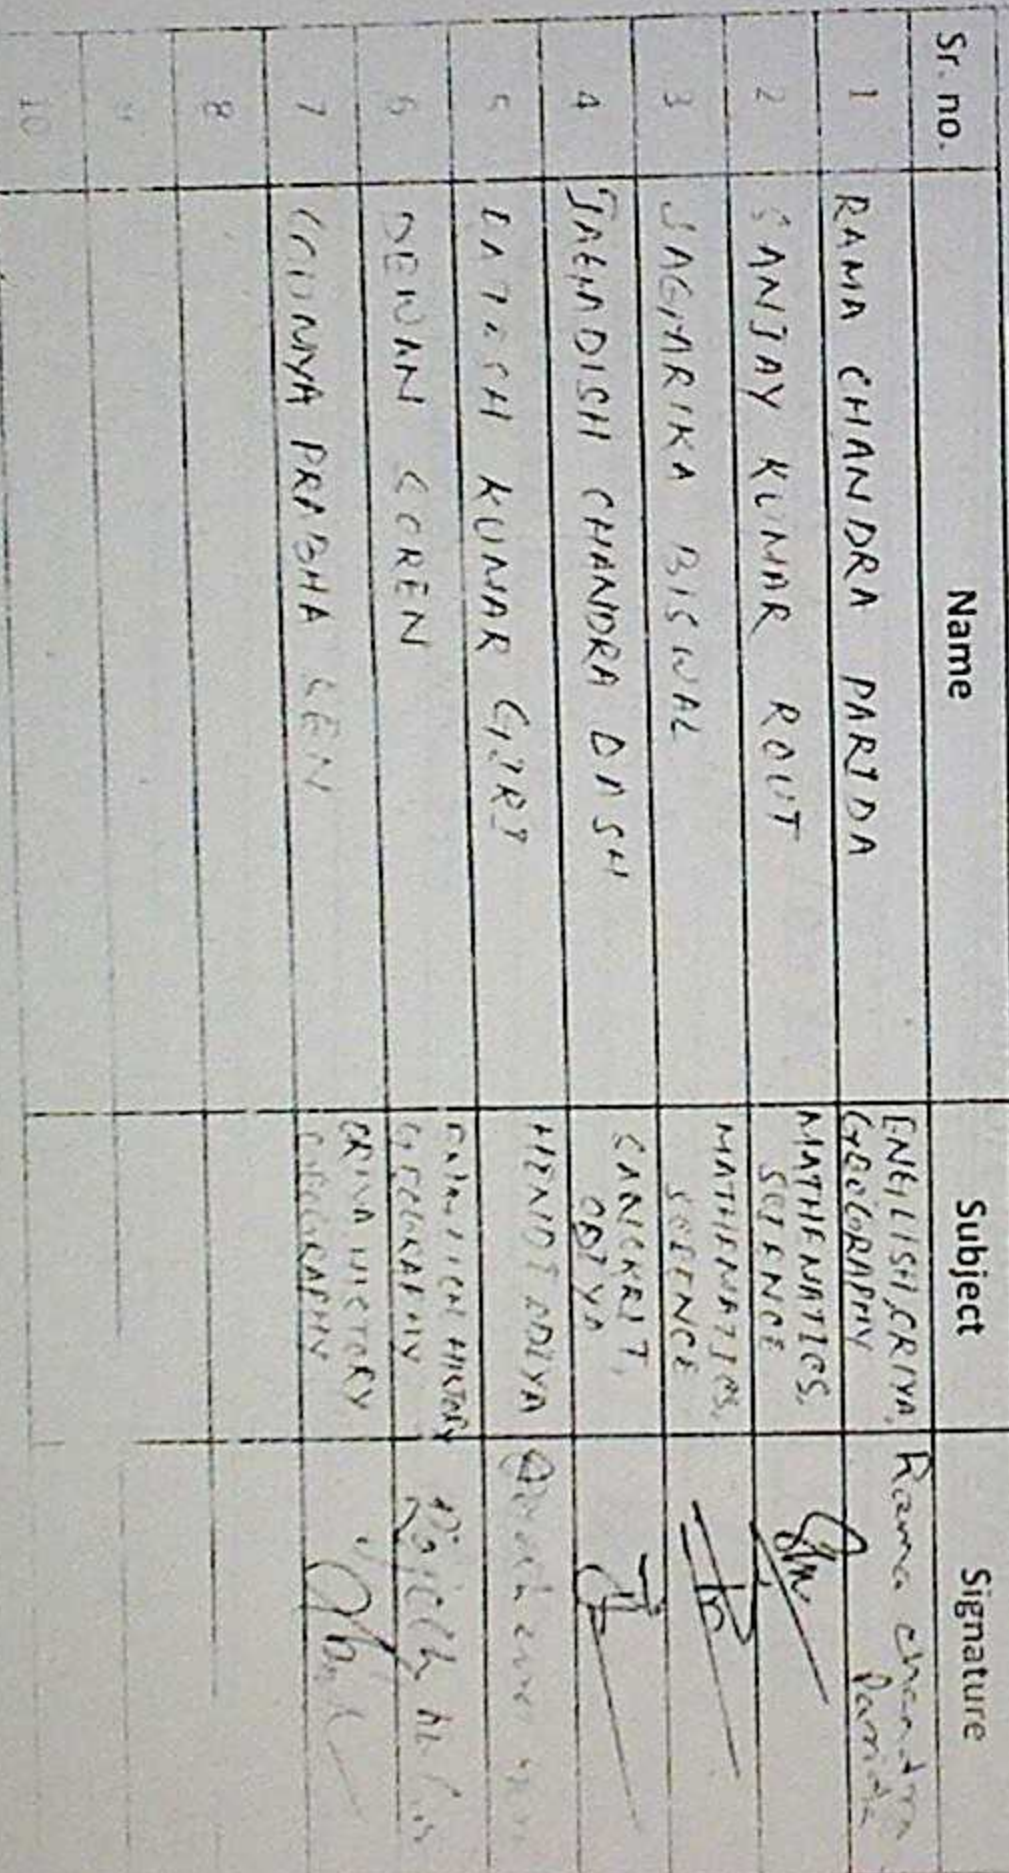 Sr. no. Name Subject Signature
1 RAMA CHANDRA PARIDA ENGLISH, CRIYA, GEOGRAPHY Rama chandra Parida
2 SANJAY KUMAR ROUT MATHEMATICS, SCIENCE
3 SAGARIKA BISWAL MATHEMATICS, SCIENCE
4 JAGADISH CHANDRA DASH SANSKRIT, ODIYA
5 KUMAR GIRI HINDI ODIYA
6 DEWAN SOREN HISTORY GEOGRAPHY
7 PRABHA SEN HISTORY GEOGRAPHY
8
9
10